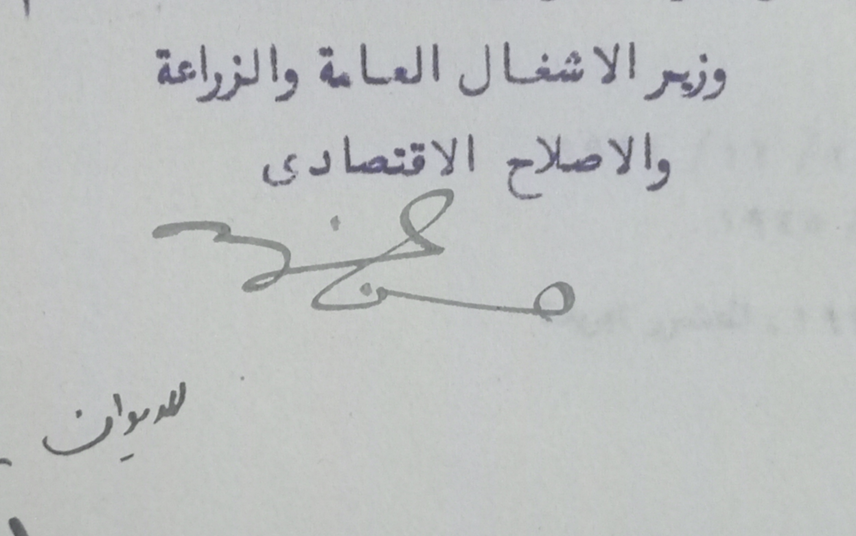 وزير الاشغال العامة والزراعة
والاصلاح الاقتصادى
للديوان